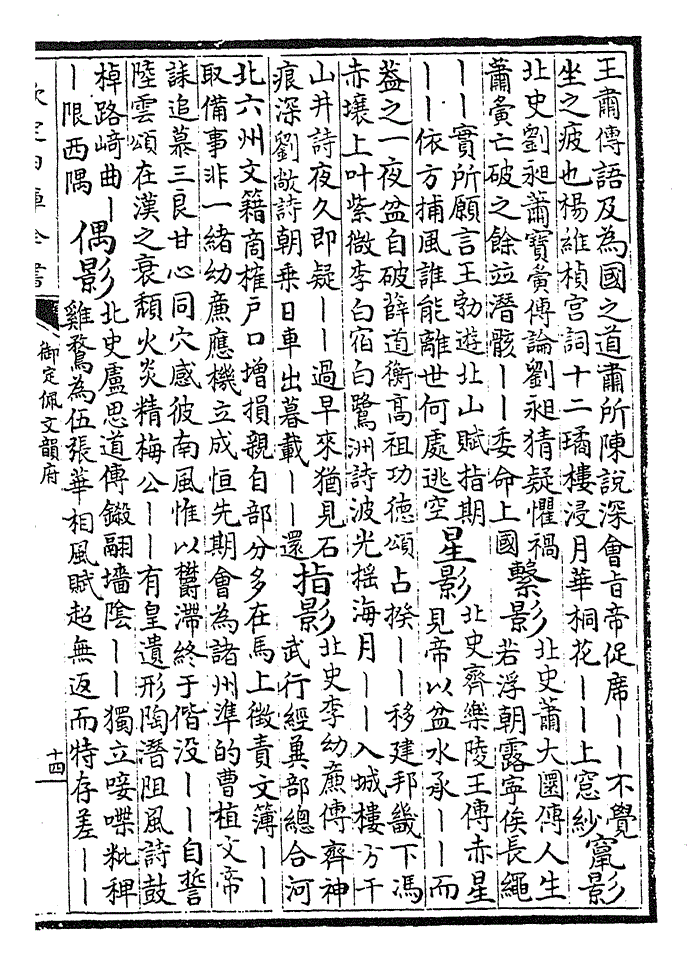 王肅傳語及為國之道肅所陳說深會㫖帝促席——不覺
坐之疲也楊維楨宫詞十二璚樓浸月華桐花——上窓紗
竄影
北史劉昶蕭寶夤傳論劉昶猜疑懼禍
蕭夤亡破之餘竝潜骸——委命上國
繫影
北史蕭大圜傳人生
若浮朝露寧俟長繩
——實所願言王勃遊北山賦指期
——依方捕風誰能離世何處逃空
星影
北史齊樂陵王傳赤星
見帝以盆水承——而
葢之一夜盆自破薛道衡高祖功徳頌占揆——移建邦畿下馮
赤壤上叶紫微李白宿白鷺洲詩波光揺海月——入城樓方干
山井詩夜久即疑——過早來猶見石
痕深劉敞詩朝乗日車出暮載——還
指影
北史李幼亷傳齊神
武行經冀部總合河
北六州文籍商㩁户口增損親自部分多在馬上徵責文簿——
取備事非一緒幼亷應機立成恒先期會為諸州準的曹植文帝
誄追慕三良甘心同穴感彼南風惟以欝滯終于偕没——自誓
陸雲頌在漢之衰頽火炎精梅公——有皇遺形陶潜阻風詩鼓
棹路﨑曲—
—限西隅
偶影
北史盧思道傳鎩翮墻隂——獨立唼喋粃稗
雞鶩為伍張華相風賦超無返而特存差——
欽定四庫全書
御定佩文韻府
十四